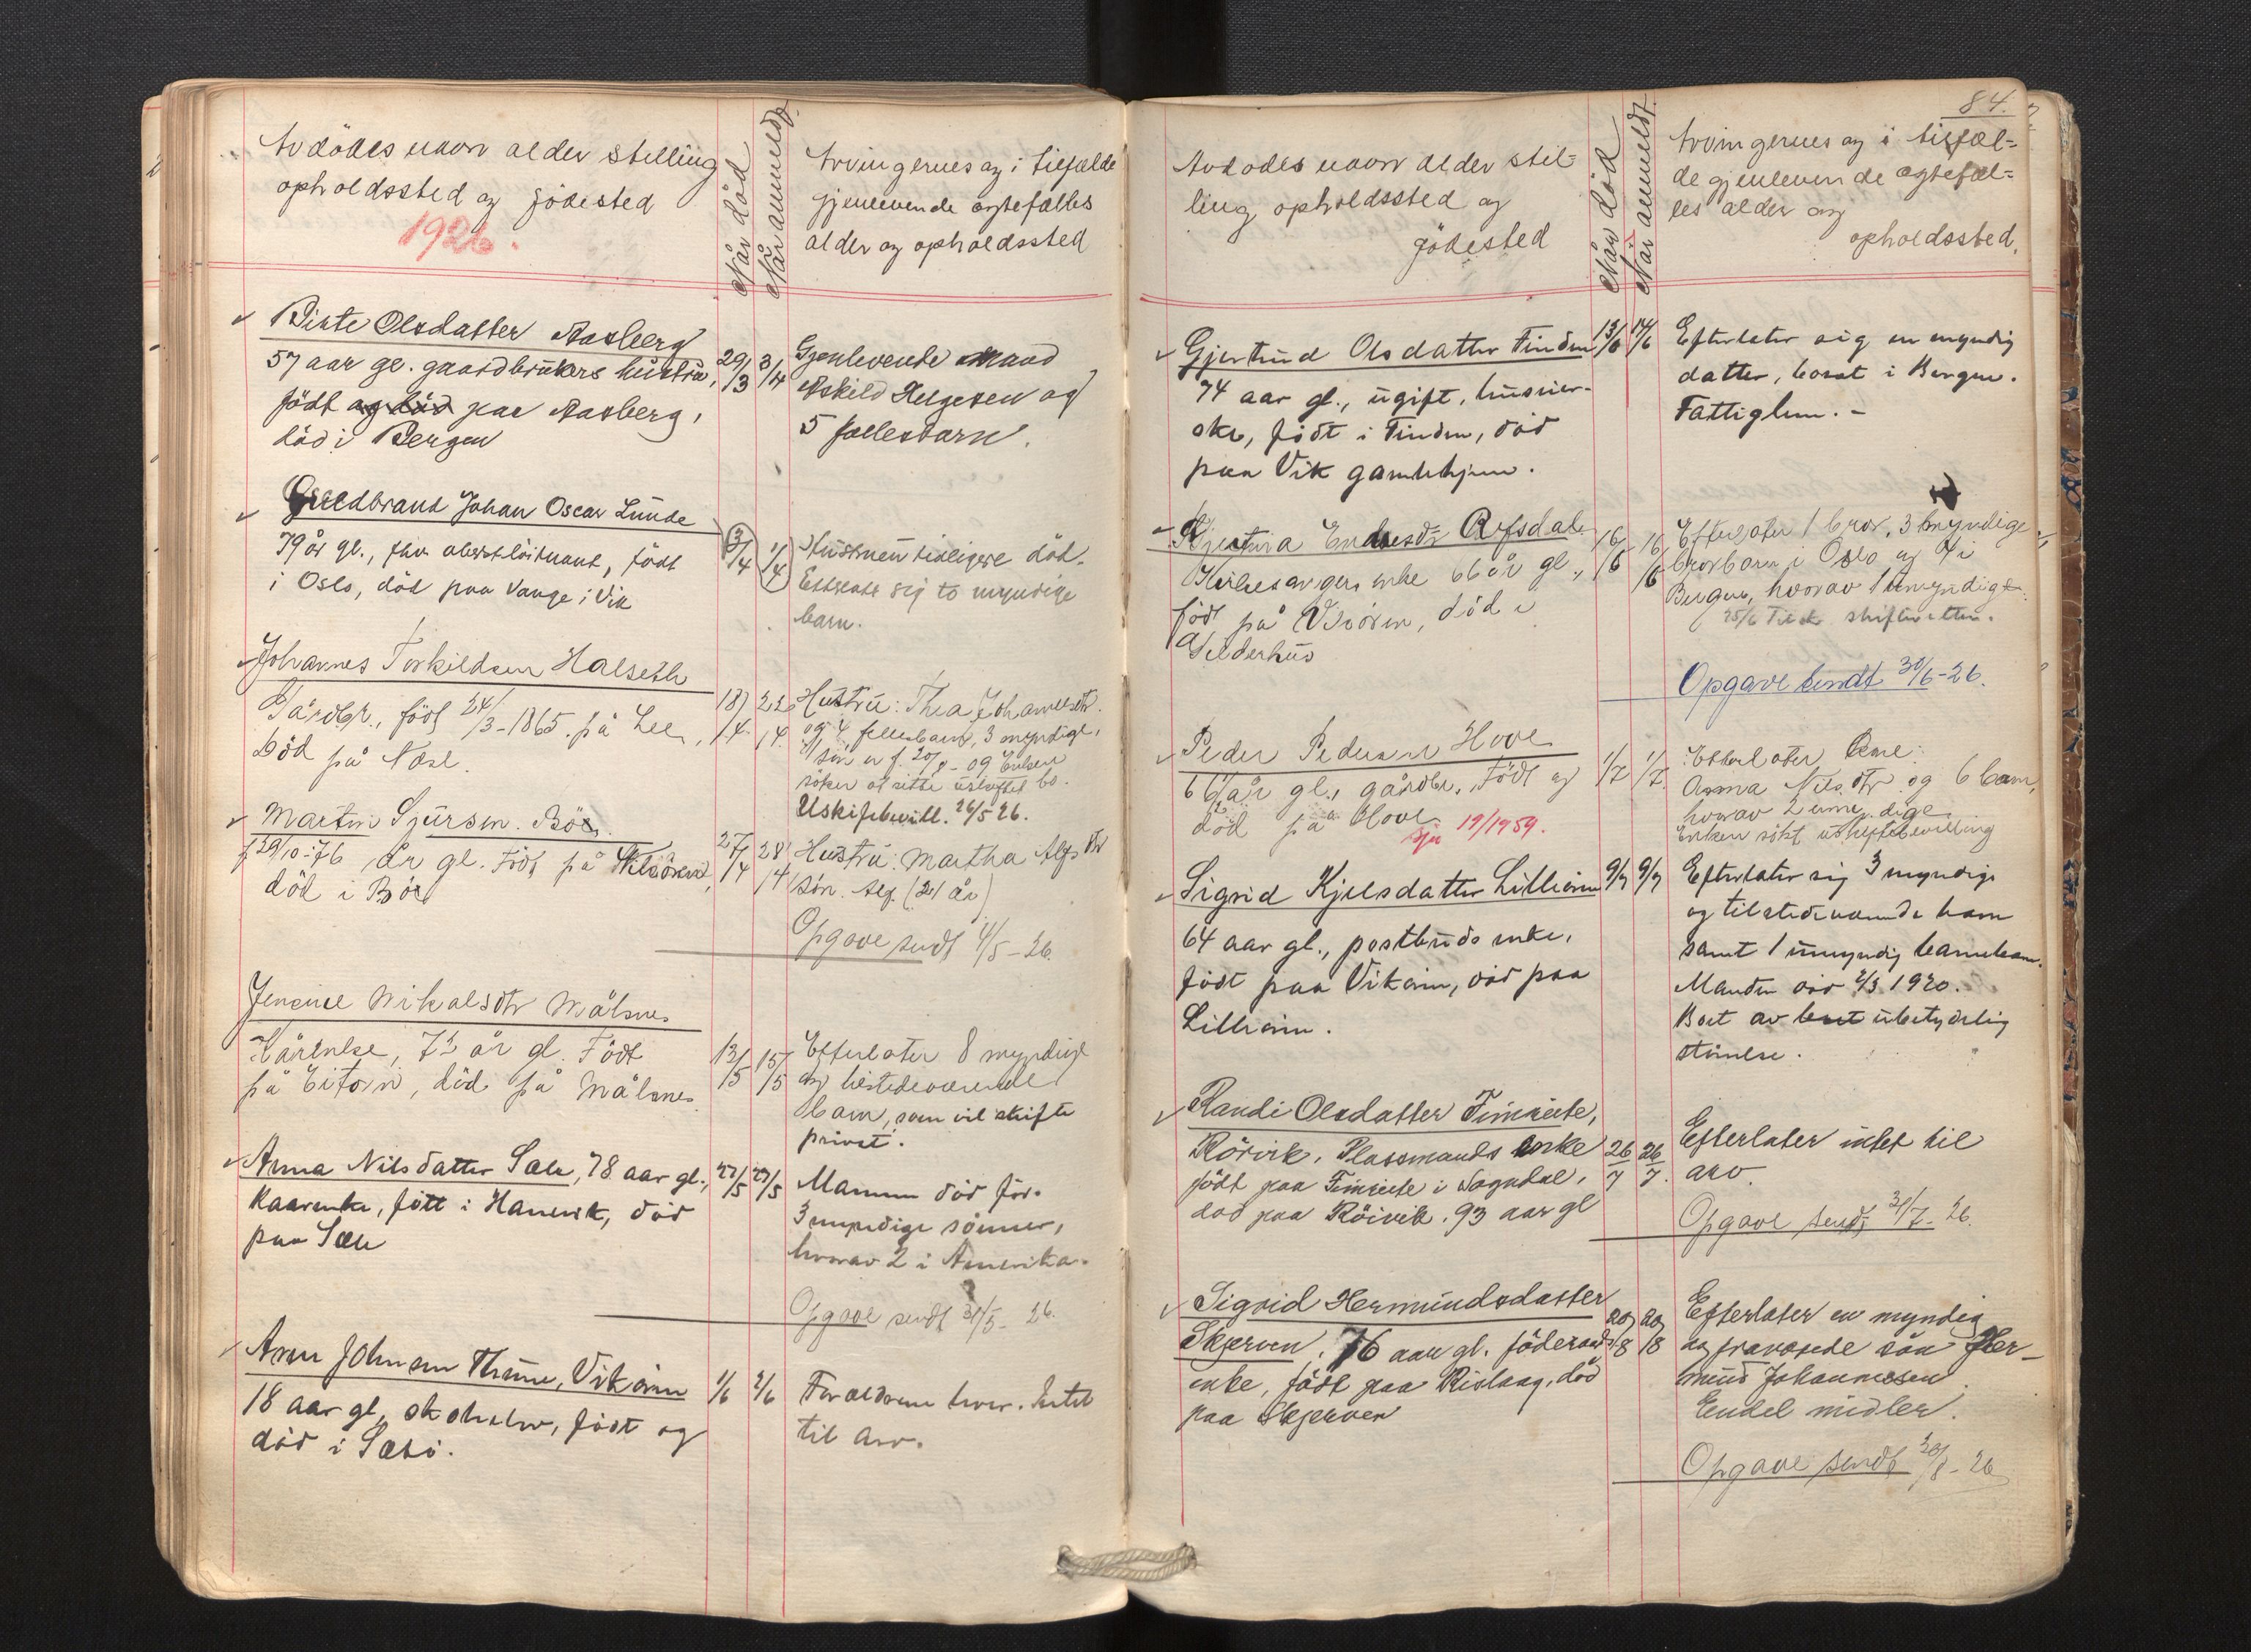 Avdödes navn alder stilling
opholdssted og födested
1926.
Når död
Når anmeldt
Arvingernes og i tilfælde
gjenlevende ægtefælles
alder og opholdssted
Birte Olsdatter Aasberg
57 aar gl. gaardbrukers hustru,
födt og död paa Aasberg,
död i Bergen
29/3
3/4
Gjenlevende mand
Eskild Helgesen og
5 fællesbarn.
Guldbrand Johan Oscar Lunde
79 år gl., fhv. oberstlöitnant, födt
i Oslo, död paa Vange i Vik
3/4
1/4
Hustruen tidligere död.
Efterlate sig to myndige
barn.
Johannes Torkildsen Halseth
Gårdbr., födt 24/3-1865. på Lee,
död på Nese.
18/4
22/4
Hustru: Thea Johannesdtr.
og 4 fellesbarn, 3 myndige,
1 sön er f. 20/8-09 Enken
söker at sitte i uskiftet bo.
Uskiftebevill. 26/5 26.
Martin Sjursen Böe.
f 29/10-76 år gl. Födt på
död i Böe
27/4
28/4
Hustru: Martha Alfsdtr
sön. Alf. (21 år)
Opgave sendt 4/5-26.
Jensine Mikalsdtr Målsnes
Kårenke, 73 år gl. Födt
på Eitorn, död på Målsnes
13/5
15/5
Efterlater 8 myndige
og tilstedeværende
barn, som vil skifte
privat.
Anna Nilsdatter Sæle, 78 aar gl.,
Kaarenke, fött i Hanevik, död
paa Sæle
27/5
27/5
Mannen död för.
3 myndige sönner,
hvorav 2 i Amerika.
Opgave sendt 31/5-26.
Arne Johnsen Thune, Vikörin
18 aar gl, skoleelev, födt og
död i Sæbö.
1/6
2/6
Forældrene lever. Intet
til Arv.
84.
Avdödes navn alder stil-
ling opholdssted og
födested
Når död
Når anmeldt.
Arvingernes og i tilfæl-
de gjenlevende ægtefæl-
les alder og
opholdssted.
Gjertrud Olsdatter Finden
74 aar gl., ugift, husvier-
ske, födt i Finden, död
paa Vik gamlehjem.
13/6
14/6
Efterlater sig en myndig
datter, bosat i Bergen.
Fattiglem. -
Kjersta Endresdtr Refsdal
Kirkesangers enke 66 år gl.,
födt på Viören, död i
Selderhus
16/6
16/6
Efterlater 1 bror, 3 myndige
brorbarn i Oslo og 4 i
Bergen, hvorav 1 umyndigt.
25/6 Tilst. skifteretten.
Opgave sendt 30/6-26.
Peder Pedersen Hove
66 år gl., gårdbr., Födt og
död på Hove.
Sjå 19/1959.
1/7
1/7
Efterlater Enke:
Anna Nilsdtr og 6 barn,
hvorav 2 umyndige.
Enken sökt uskiftebevilling
Sigrid Kjelsdatter Lilleörin
64 aar gl., postbuds enke,
födt paa Vikörin, död paa
Lilleörin.
9/7
9/7
Efterlater sig 3 myndige
og tilstedeværende barn
samt 1 umyndig barnebarn.
Manden död 2/3 1920.
Boet av boet ubetydelig
störrelse.
Randi Olsdatter Fimreite,
Rörvik. Plassmands enke
födt paa Fimreite i Sogndal,
död paa Röivik. 93 aar gl
26/7
26/7.
Efterlater intet til
arv.
Opgave sendt 31/7-26.
Sigrid Hermundsdatter
Skjerven. 76 aar gl. föderaads
enke, födt paa Rislaag, död
paa Skjerven
20/8
20/8
Efterlater en myndig
og fraværende sön Her-
mund Johannesen.
Endel midler.
Opgave sendt 30/8-26